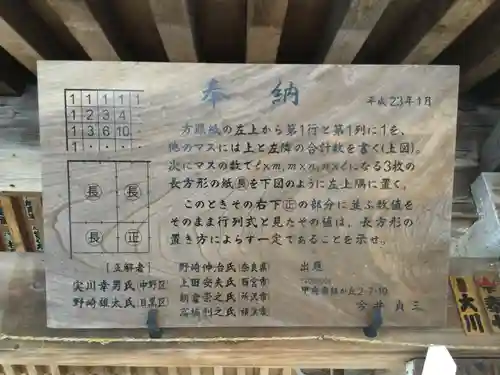 奉納
平成23年1月
1 1 1 1 1
1 2 3 4 ·
1 3 6 10 ·
1 · · · ·
方眼紙の左上から第1行と第1列に1を、
他のマスには上と左隣の合計数を書く(上図)。
次にマスの数でℓ×m, m×n, n×ℓになる3枚の
長方形の紙㊑を下図のように左上隅に置く。
このときその右下㊣の部分に並ぶ数値を
そのまま行列式と見たその値は、長方形の
置き方によらず一定であることを示せ。
長 長
長 正
[正解者]
実川幸男氏(中野区)
野崎雄太氏(目黒区)
野崎伸治氏(奈良県)
上田安夫氏(西宮市)
出題
甲府市緑が丘2-7-10
今井貞三
大川